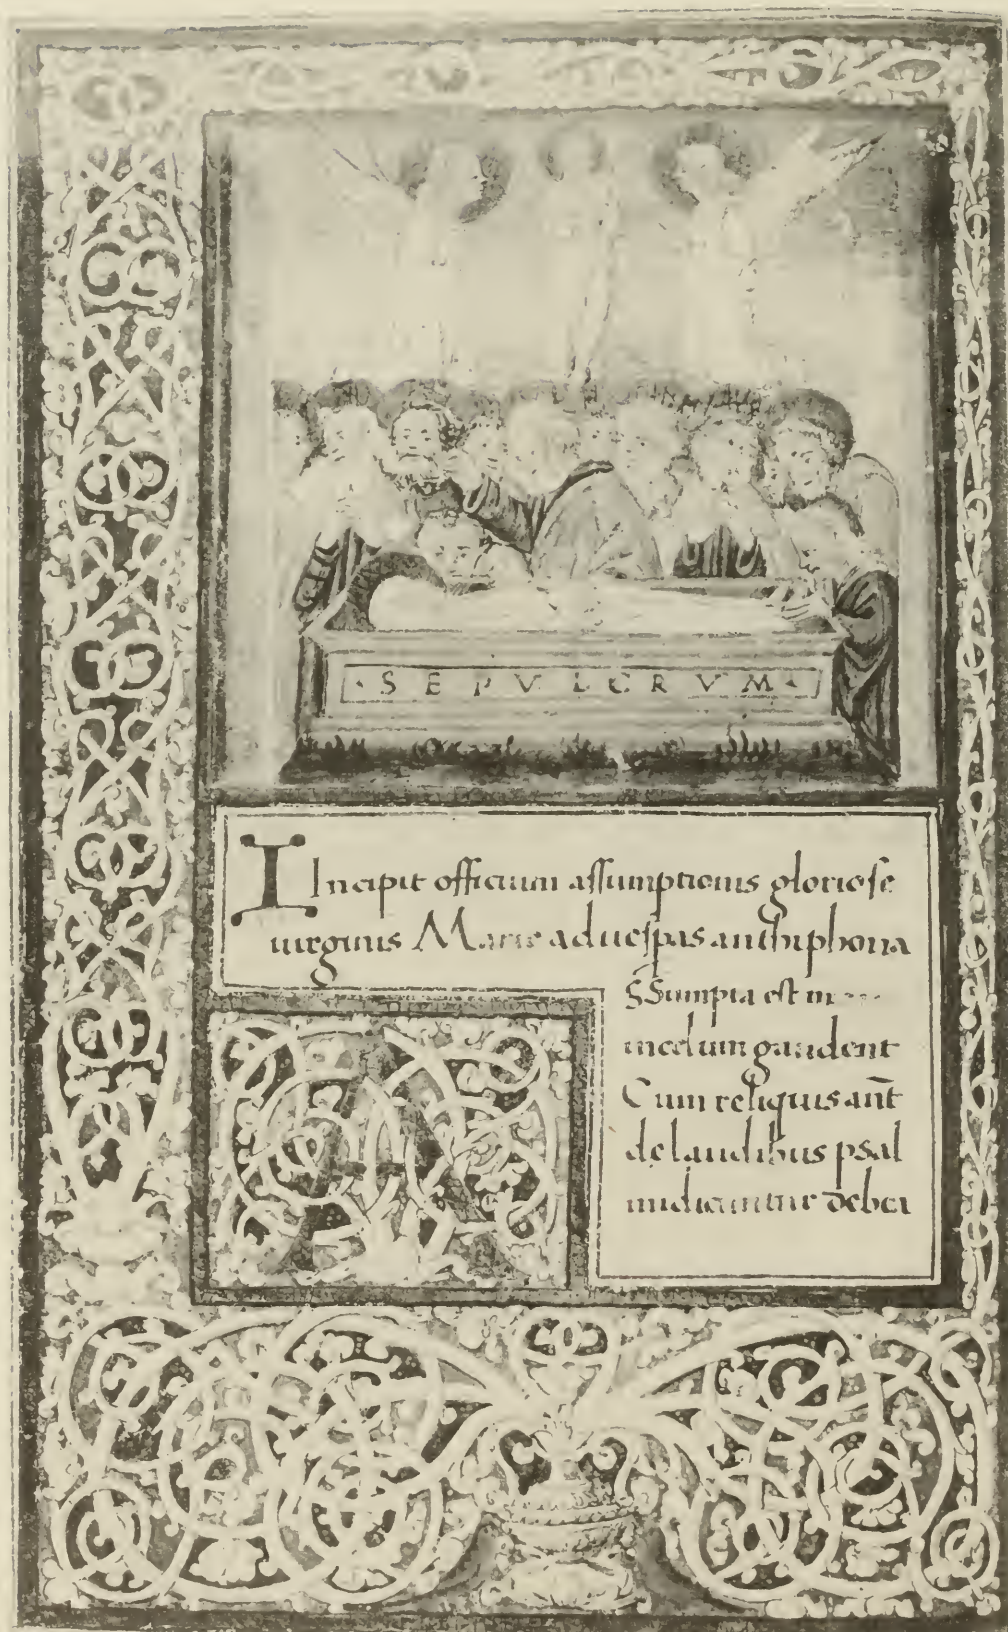 ·SEPVLCRVM·
Incipit officium assumptionis gloriose
uirginis Marie ad uespas anthiphona
SSumpta est m
incelum gaudent
Cum reliquis an̄t
de laudibus psal
mi dicuntur